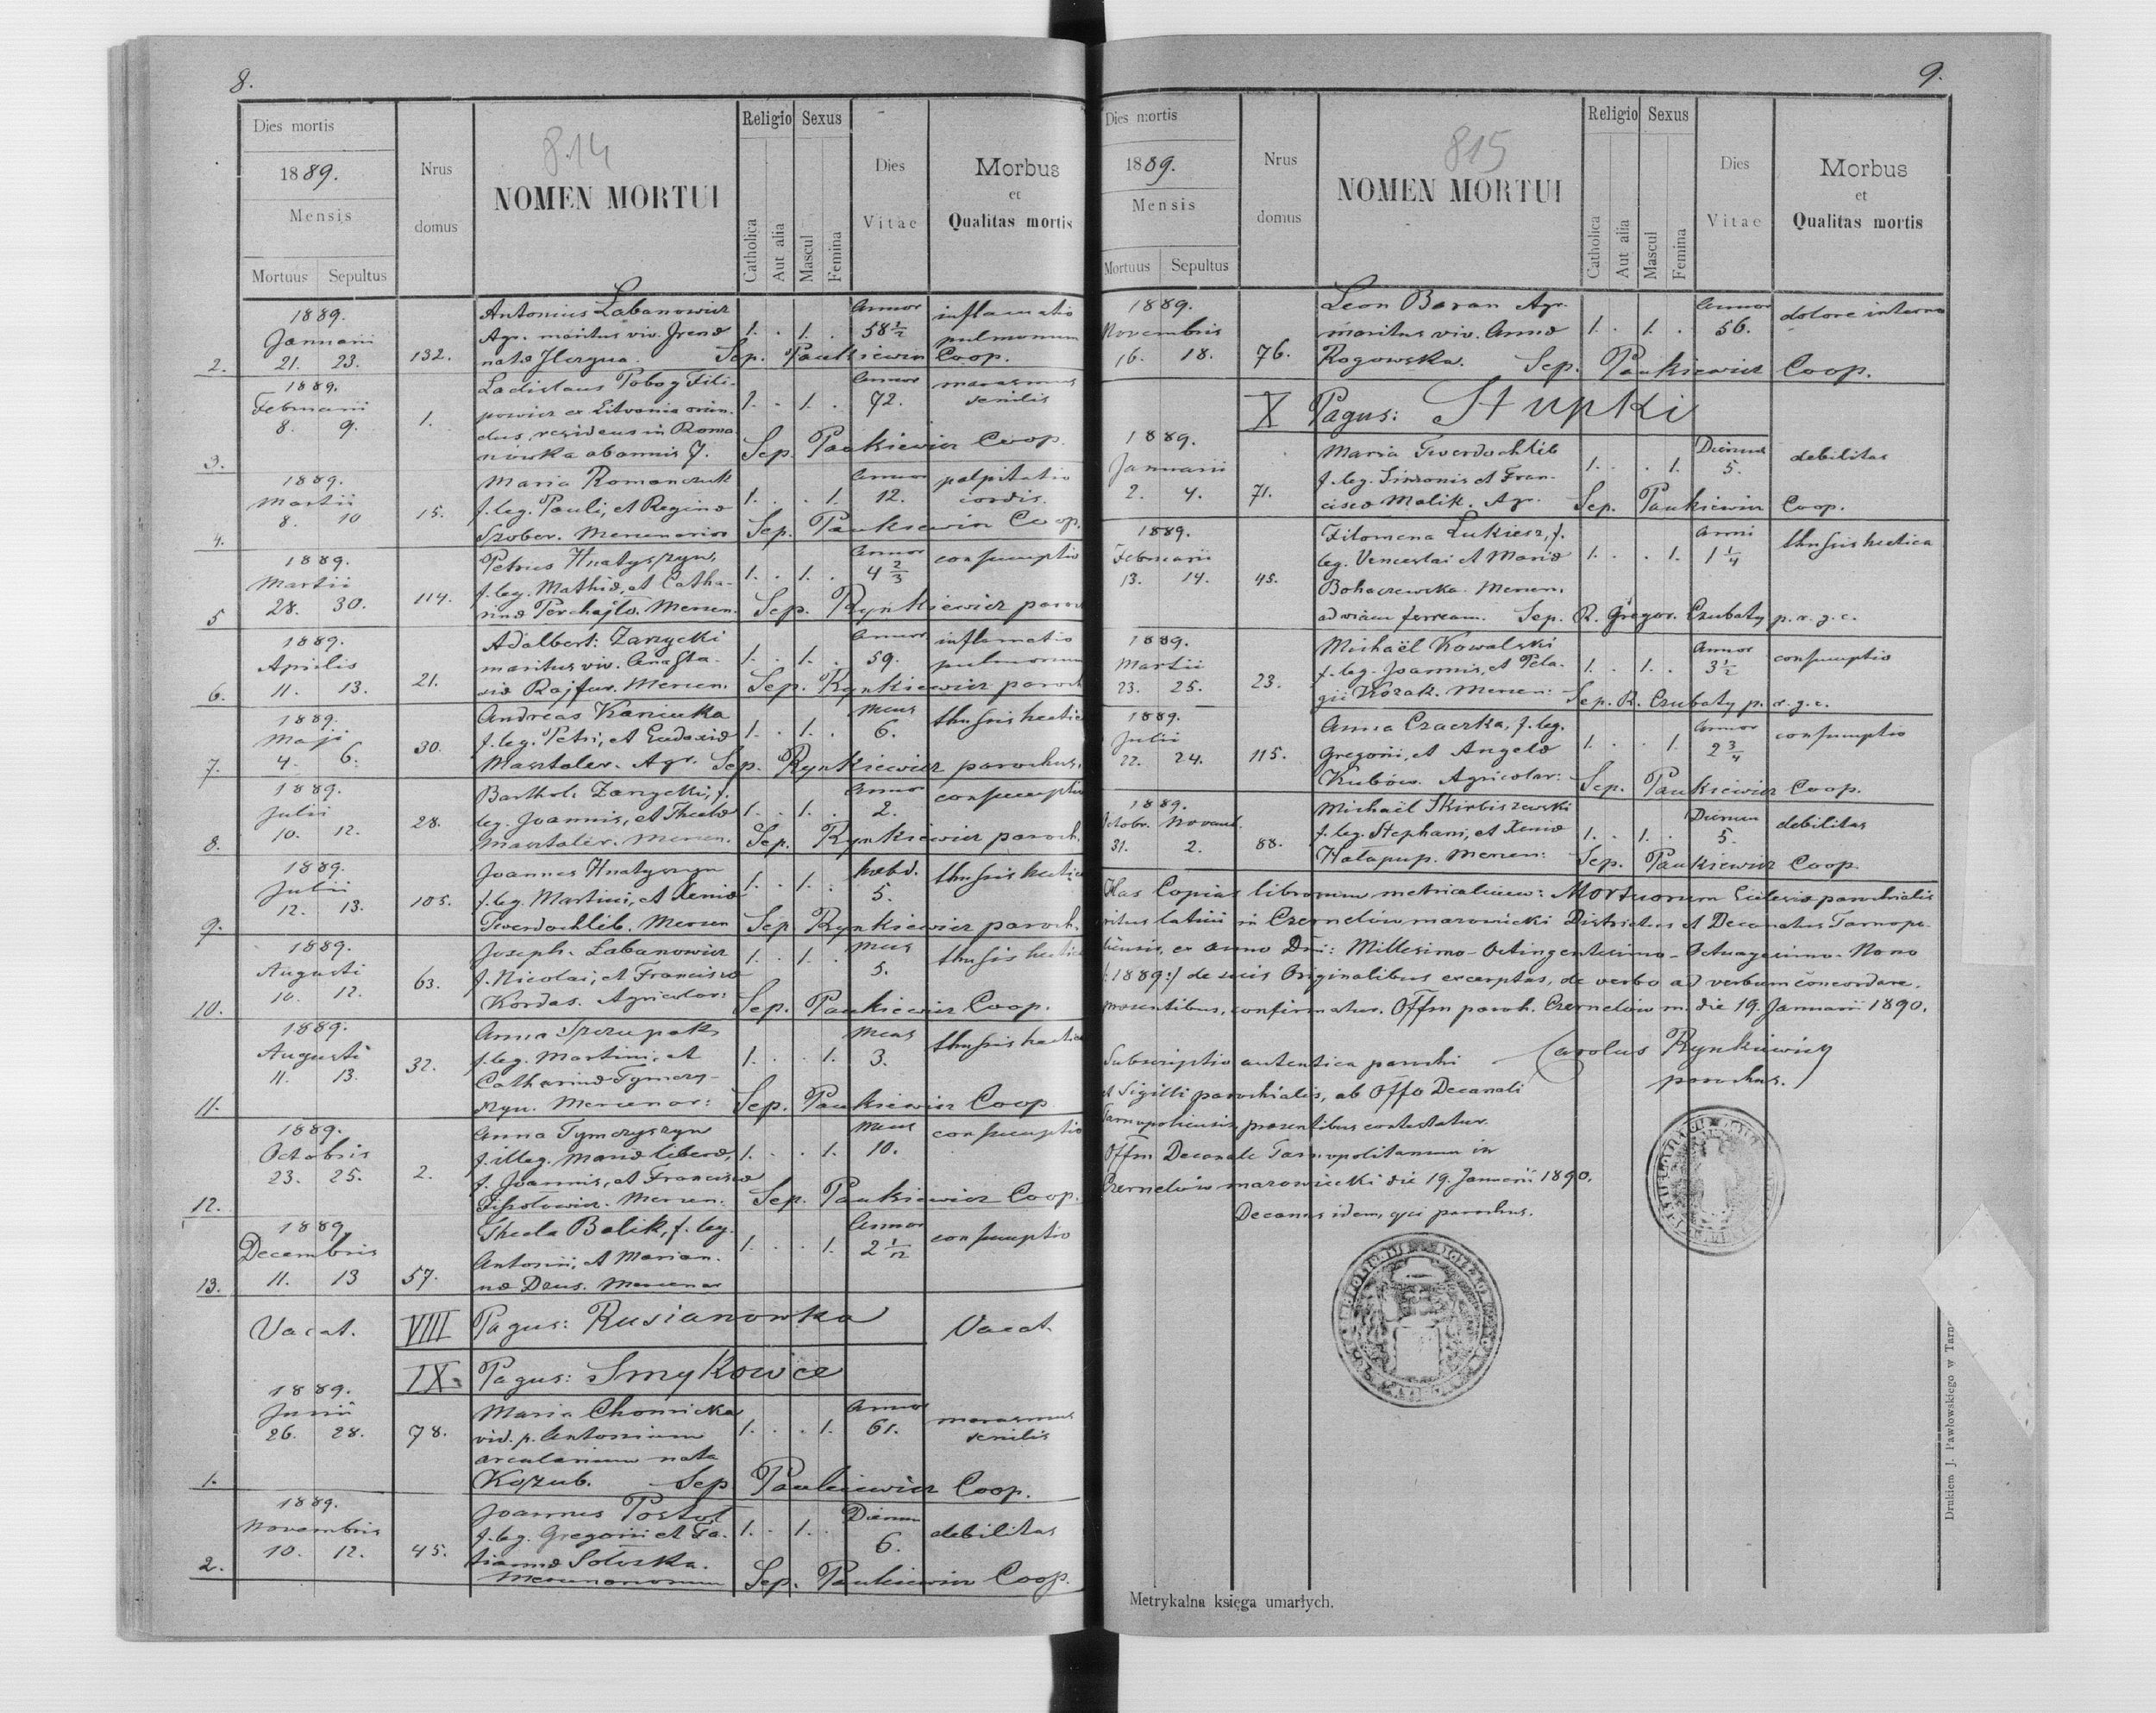 8.
Dies mortis
1889.
Mensis
Mortuus Sepultus
Nrus domus
814
NOMEN MORTUI
Religio Sexus
Catholica Aut alia Mascul Femina
Dies Vitae
Morbus
et
Qualitas mortis
1889. Antonius Labanowicz Annor inflamatio
Januarii Agr. maritus viv. Irenæ 1. 1. 58 1/2 pulmonum
2. 21. 23. 132. natæ Sep. Paukiewicz Coop.
1889. Ladislaus Pobog Fili- Annor marasmus
Februarii powicz ex Litvania oriun- 1. 1. 72. senilis
8. 9. 1. dus, residens in Roma-
3. nówka ab annis 7. Sep. Paukiewicz Coop.
1889. Maria Romanczuk Annor palpitatio
Martii f. leg. Pauli, et Reginæ 1. 1. 12. cordis.
4. 8. 10 15. Szober. Mercenarior Sep. Paukiewicz Coop.
1889. Petrus Hnatyszyn, Annor consumptio
Martii f. leg. Mathiæ, et Catha- 1. 1. 4 2/3
5 28. 30. 114. rinæ Perchajło. Mercen. Sep. Rynkiewicz paroch
1889. Adalbert: Zarzycki Annor inflamatio
Aprilis maritus viv. Anasta- 1. 1. 59. pulmonum
6. 11. 13. 21. siæ Rajfur. Mercen. Sep. Rynkiewicz paroch
1889. Andreas Kaniuka Mens thussis hectica
Maji f. leg. Petri, et Eudoxiæ 1. 1. 6.
7. 4. 6. 30. Masztaler. Agr. Sep. Rynkiewicz parochus.
1889. Barthol. Zarzycki, f. Annor consumptio
Julii leg. Joannis, et Theclæ 1. 1. 2.
8. 10. 12. 28. Masztaler. Mercen. Sep. Rynkiewicz paroch.
1889. Joannes Hnatyszyn hebd. thussis hectica
Julii f. leg. Martini, et Xeniæ 1. 1. 5.
9. 12. 13. 105. Twerdochlib. Mercen Sep Rynkiewicz paroch.
1889. Joseph. Labanowicz Mens thussis hectica
Augusti f. Nicolai, et Franciscæ 1. 1. 5.
10. 10. 12. 63. Kordas. Agricolar: Sep. Paukiewicz Coop.
1889. Anna Szczupak Mens thussis hectica
Augusti f. leg. Martini, et 1. 1. 3.
11. 13. 32. Catharinæ Tymczy-
11. szyn. Mercenar: Sep. Paukiewicz Coop
1889. Anna Tymczyszyn Mens consumptio
Octobris f. illeg. Mariæ liberæ, 1. 1. 10.
23. 25. 2. f. Joannis, et Franciscæ
12. Mercen: Sep. Paukiewicz Coop.
1889. Thecla Balik, f. leg. Annor consumptio
Decembris Antonii, et Marian- 1. 1. 2 1/12
13. 11. 13 57. næ Dzus. Mercenar
Vacat. VIII Pagus: Rusianówka Vacat
IX. Pagus: Smykowce
1889. Maria Chomicka Annor marasmus
Junii vid. p. Antonium 1. 1. 61. senilis
26. 28. 78. arcularium nata
1. Kozub. Sep Paukiewicz Coop.
1889. Joannes Postoł Dierum debilitas
Novembris f. leg. Gregorii et Ta- 1. 1. 6.
10. 12. 45. tiannæ Soloska.
2. Mercenariorum Sep. Paukiewicz Coop.
9.
Dies mortis
1889.
Mensis
Mortuus Sepultus
Nrus domus
815
NOMEN MORTUI
Religio Sexus
Catholica Aut alia Mascul Femina
Dies Vitae
Morbus
et
Qualitas mortis
1889. Leon Baran Agr. Annor dolore interno
Novembris maritus viv. Annæ 1. 1. 56.
16. 18. 76. Rogowska. Sep. Paukiewicz Coop.
X Pagus: Stupki
1889. Maria Twerdochlib Dierum debilitas
Januarii f. leg. Simonis et Fran- 1. 1. 5.
2. 4. 71. ciscæ Malik. Agr. Sep. Paukiewicz Coop.
1889. Filomena Łukiesz, f. Anni thussis hectica
Februarii leg. Venceslai et Mariæ 1. 1. 1 1/4
13. 14. 45. Bohaczewska. Mercen.
ad viam ferream. Sep. R. Gregor. Czubaty p. r. g. c.
1889. Michaël Kowalski Annor consumptio
Martii f. leg. Joannis, et Pela- 1. 1. 3 1/2
23. 25. 23. gii Kozak. Mercen: Sep. R. Czubaty p. r. g. c.
1889. Anna Czaczka, f. leg. Annor consumptio
Julii Gregorii, et Angelæ 1. 1. 2 3/4
22. 24. 115. Kubów. Agricolar: Sep. Paukiewicz Coop.
1889. Michaël Skirbiszewski Dierum debilitas
Octobr. Novemb. f. leg. Stephani, et Xeniæ 1. 1. 5.
31. 2. 88. Hałapup. Mercen: Sep. Paukiewicz Coop.
Has Copias librorum metricalium: Mortuorum Ecclesiæ parochialis
ritus latini in Czernelów mazowiecki Districtus et Decanatus Tarnopo-
liensis, ex anno Dni: Millesimo-Octingentesimo-Octuagesimo-Nono
/:1889:/ de suis Originalibus excerptas, de verbo ad verbum concordare,
præsentibus, confirmatur. Offm paroch. Czernelów m. die 19. Januarii 1890.
Subscriptio autentica parochi Carolus Rynkiewicz
et Sigilli parochialis, ab Offo Decanali parochus.
Tarnopoliensis, præsentibus contestatur.
Offm Decanale Tarnopolitanum in
Czernelów mazowiecki die 19. Januarii 1890.
Decanus idem, qui parochus.
Metrykalna księga umarłych.
Drukiem J. Pawłowskiego w Tarno